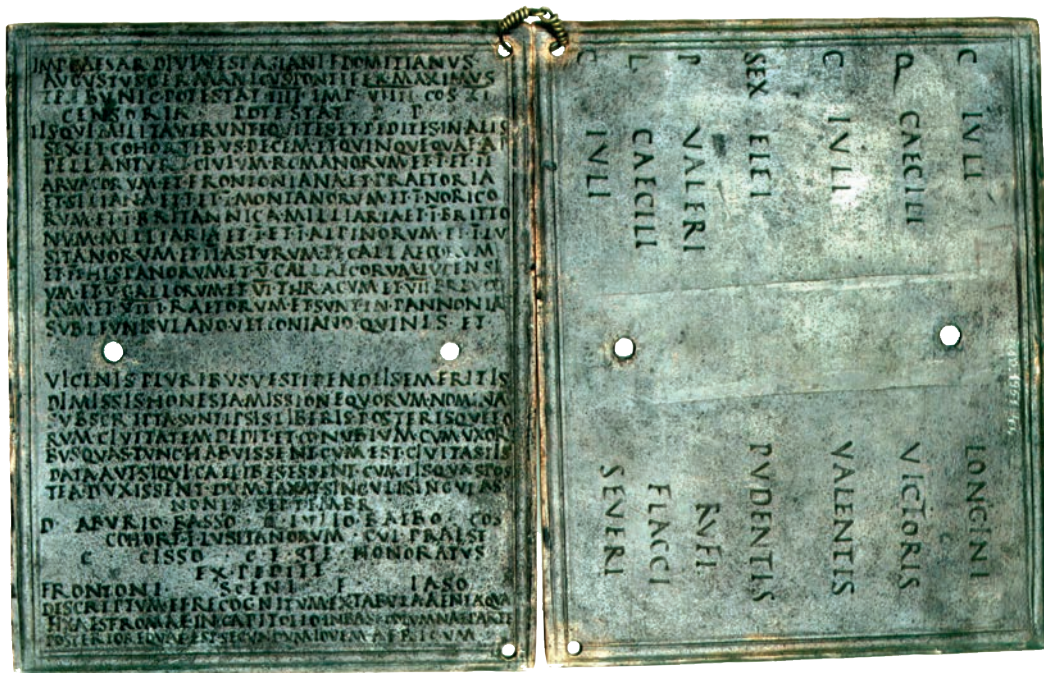 IMP CAESAR DIVI VESPASIANI F DOMITIANVS
AVGVSTVS GERMANICVS PONTIFEX MAXIMVS
TRIBVNIC POTESTAT IIII IMP VIIII COS XI
CENSORIA POTESTAT P P
IIS QVI MILITAVERVNT EQVITES ET PEDITES IN ALIS
SEX ET COHORTIBVS DECEM ET QVINQVE QVAE AP
PELLANTVR I CIVIVM ROMANORVM ET I ET II
ARVACORVM ET FRONTONIANA ET PRAETORIA
ET SILIANA ET I MONTANORVM ET I NORICO
RVM ET I BRITANNICA MILLIARIA ET I BRITTO
NVM MILLIARIA ET I ET I ALPINORVM ET I LV
SITANORVM ET II ASTVRVM ET CALLAECORVM
ET II HISPANORVM ET V CALLAECORVM LVCENSI
VM ET V GALLORVM ET VI THRACVM ET VII BREVCO
RVM ET VIII RAETORVM ET SVNT IN PANNONIA
SVB L FVNISVLANO VETTONIANO QVINIS ET
VICINIS PLVRIBVSVE STIPENDIIS EMERITIS
DIMISSIS HONESTA MISSIONE QVORVM NOMINA
SVBSCRIPTA SVNT IPSIS LIBERIS POSTERISQVE EO
RVM CIVITATEM DEDIT ET CONVBIVM CVM VXORI
BVS QVAS TVNC HABVISSENT CVM EST CIVITAS IIS
DATA AVT SIQVI CAELIBES ESSENT CVM IIS QVAS POS
TEA DVXISSENT DVMTAXAT SINGVLI SINGVLAS
NONIS SEPTEMBR
D ABVRIO BASSO Q IVLIO BALBO COS
COHORT I LVSITANORVM CVI PRAEST
C CISSO C F STE HONORATVS
EX PEDITE
FRONTONI SCENI F IASO
DESCRIPTVM ET RECOGNITVM EX TABVLA AENEA QVAE
FIXA EST ROMAE IN CAPITOLIO IN BASI COLVMNAE PARTE
POSTERIORE QVAE EST SECVNDVM IOVEM AFRICVM
C IVLI LONGINI
P CAECILI VICTORIS
C IVLI VALENTIS
SEX ELEI PVDENTIS
P VALERI RVFI
L CAECILI FLACCI
C IVLI SEVERI